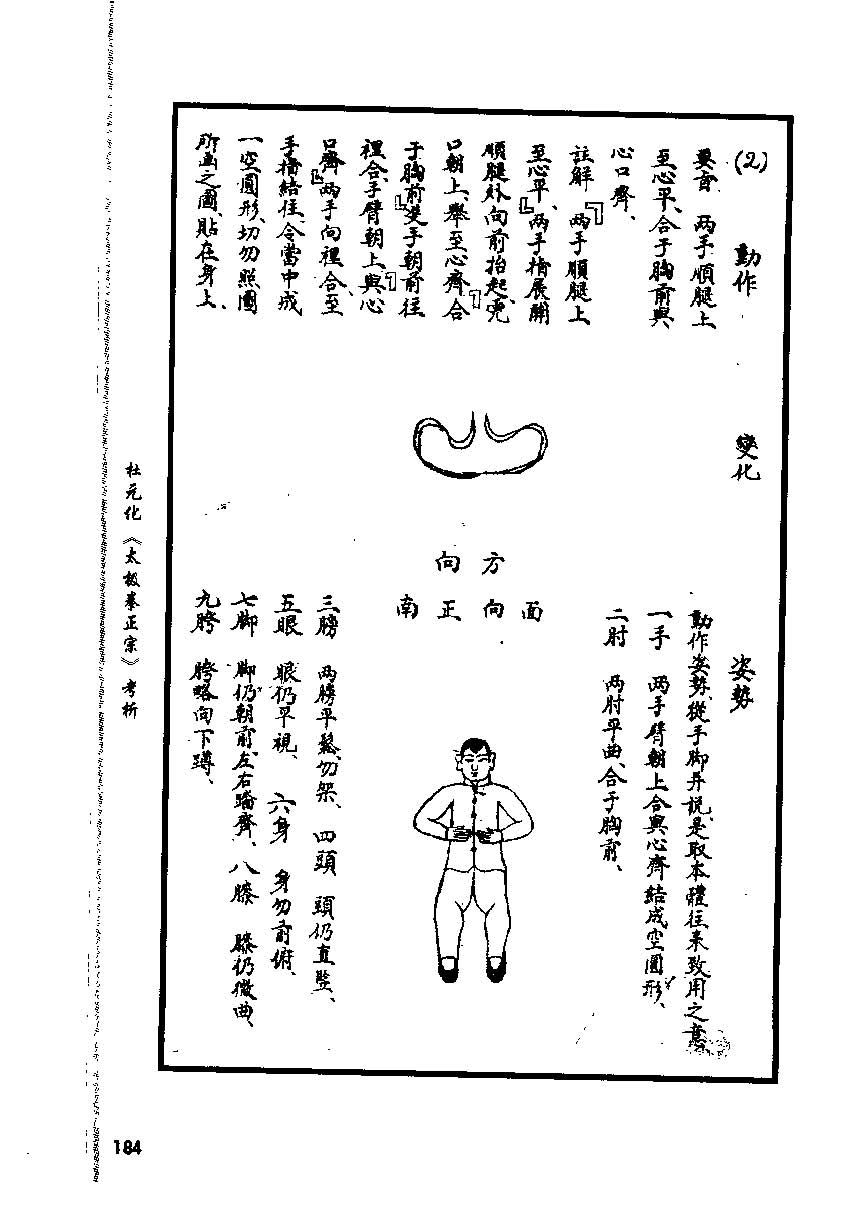 (2) 動作 變化 姿勢
要言 两手順腿上
至心平、合于胸前與
心口齊、
註解 『两手順腿上
至心平、』两手指展開
順腿外向前抬起、
口朝上、舉至心齊『合
于胸前』雙手朝前往
裡合、手臂朝上『與心
口齊』两手向裡合至
手指結住、令當中成
一空圓形、切勿照圖
所画之圖、貼在身上、
方向
面向正南
動作姿勢、從手脚弄說、是取本體往来致用之意、
一手 两手臂朝上合與心齊結成空圓形、
二肘 两肘平曲、合于胸前、
三膀 两膀平鬆、勿架、 四頭 頭仍直竪、
五眼 眼仍平視、 六身 身勿前俯、
七脚 脚仍朝前、左右踏齊、 八膝 膝仍微曲、
九胯 胯略向下蹲、
杜元化《太极拳正宗》考析
184